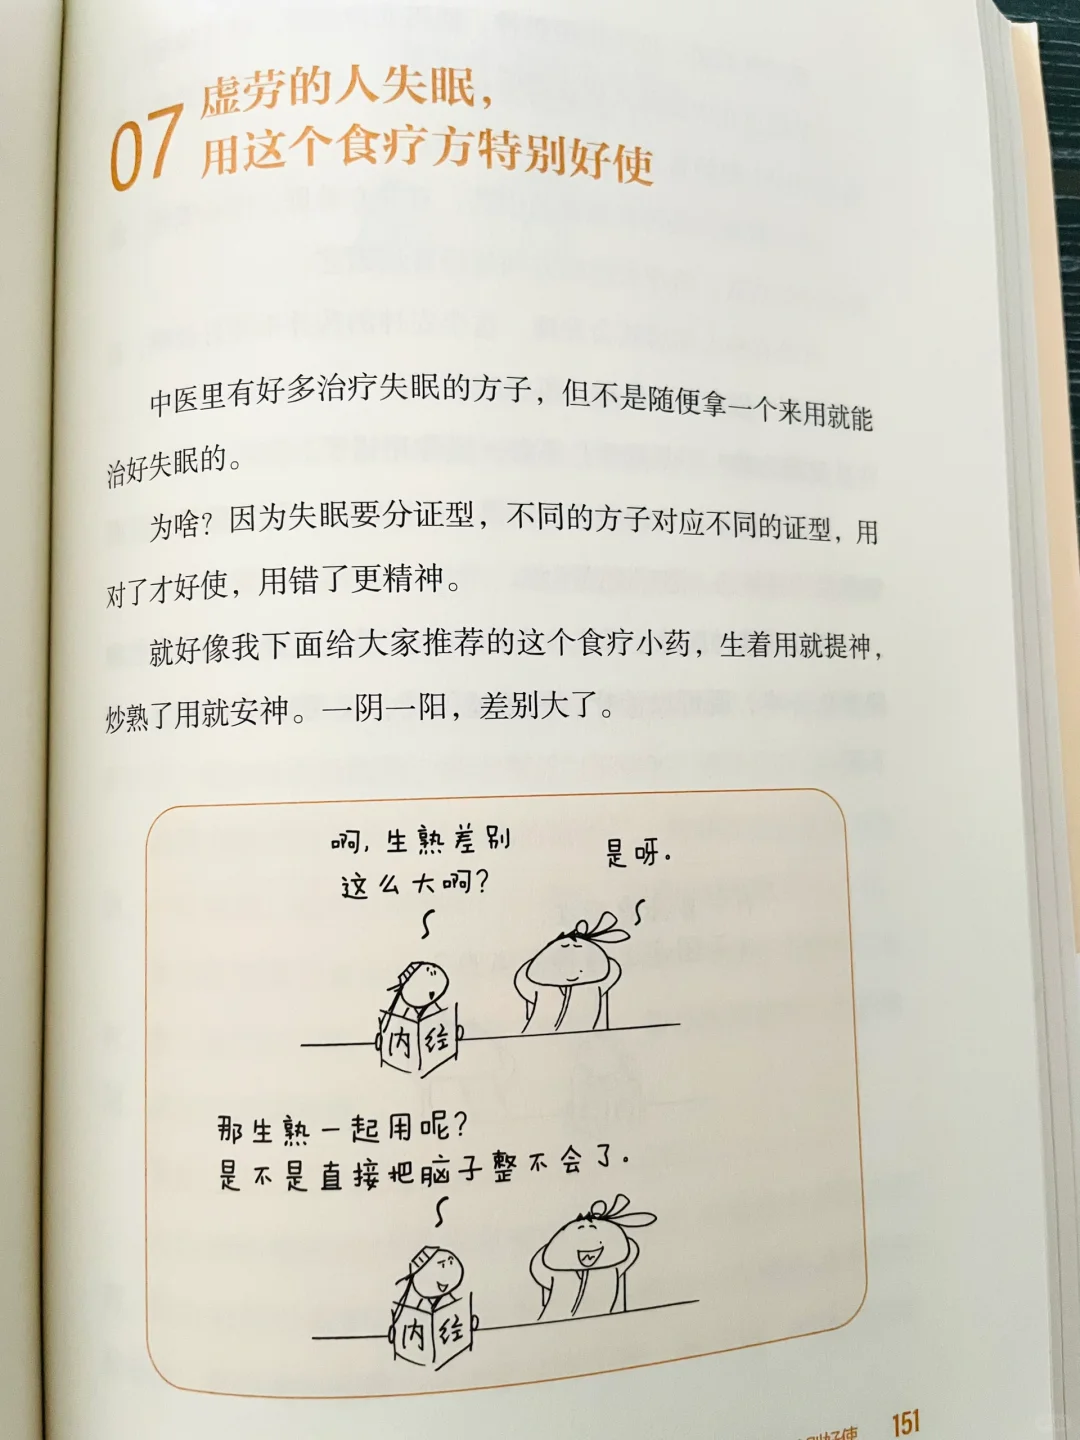 07
虚劳的人失眠，
用这个食疗方特别好使
中医里有好多治疗失眠的方子，但不是随便拿一个来用就能
治好失眠的。
为啥？因为失眠要分证型，不同的方子对应不同的证型，用
对了才好使，用错了更精神。
就好像我下面给大家推荐的这个食疗小药，生着用就提神，
炒熟了用就安神。一阴一阳，差别大了。
啊，生熟差别
这么大啊？
是呀。
内经
那生熟一起用呢？
是不是直接把脑子整不会了。
内经
别好使 151